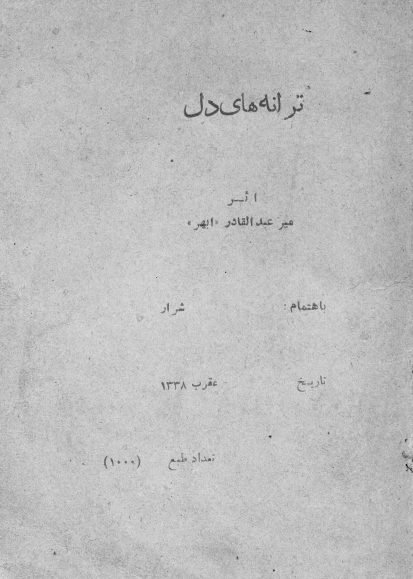 ترانه‌های دل
اثر
میر عبدالقادر «ابهر»
باهتمام: شرار
تاریخ عقرب ۱۳۳۸
تعداد طبع (۱۰۰۰)